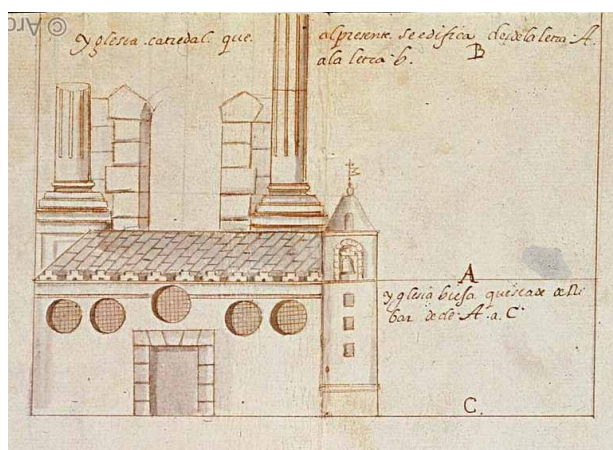 © Arc
yglesia catedal. que. alpresente. se edifica desdela letra. A.
ala letra b. B
A
yglesia biefa questa de deRi
bar. desde. A. a. C.
C.